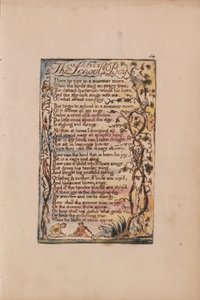 The School Boy
I love to rise in a summer morn,
When the birds sing on every tree;
The distant huntsman winds his horn,
And the sky-lark sings with me.
O! what sweet company.
But to go to school in a summer morn,
O! it drives all joy away;
Under a cruel eye outworn,
The little ones spend the day,
In sighing and dismay.
Ah! then at times I drooping sit,
And spend many an anxious hour,
Nor in my book can I take delight,
Nor sit in learnings bower,
Worn thro' with the dreary shower.
How can the bird that is born for joy,
Sit in a cage and sing.
How can a child when fears annoy,
But droop his tender wing,
And forget his youthful spring.
O! father & mother, if buds are nip'd,
And blossoms blown away,
And if the tender plants are strip'd
Of their joy in the springing day,
By sorrow and cares dismay,
How shall the summer arise in joy
Or the summer fruits appear.
Or how shall we gather what griefs destroy
Or bless the mellowing year,
When the blasts of winter appear.